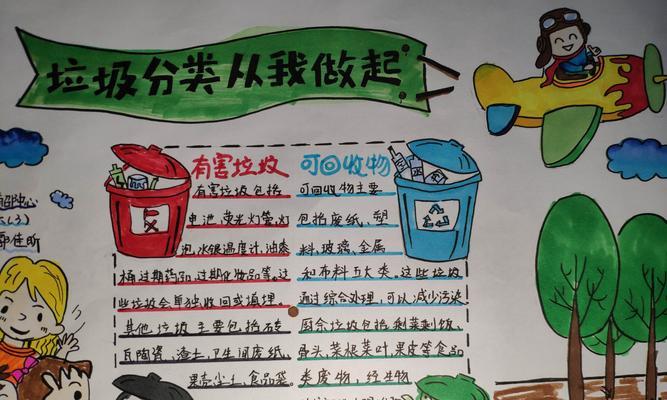 垃圾分类从我做起
有害垃圾
有害垃圾包括
电池、荧光灯管、灯
泡、水银温度计、油漆
桶、过期药品、过期化妆品等。这
些垃圾会单独收回或填埋。
其他垃圾主要包括砖
瓦陶瓷、渣土、卫生间废纸、
果壳尘土、食品袋。
可回收物
可回收物主要
包括废纸、塑
料、玻璃、金属
和布料五大类。这些垃圾
通过综合处理,可以减少污染
厨余垃圾包括剩菜剩饭、
骨头、菜根菜叶、果皮等食品
类废物,经生物